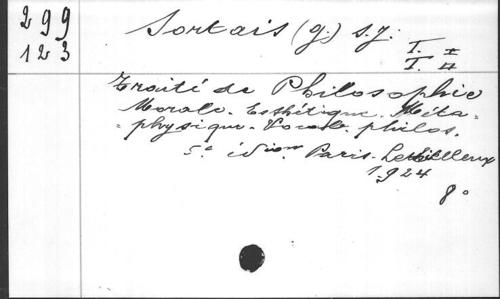 299
123
Sortais (G.) S.J.
T. I
T. II
Traité de Philosophie
Morale. Esthétique. Méta=
=physique. Vocab. philos.
5e édion Paris. Lethielleux
1924
8°